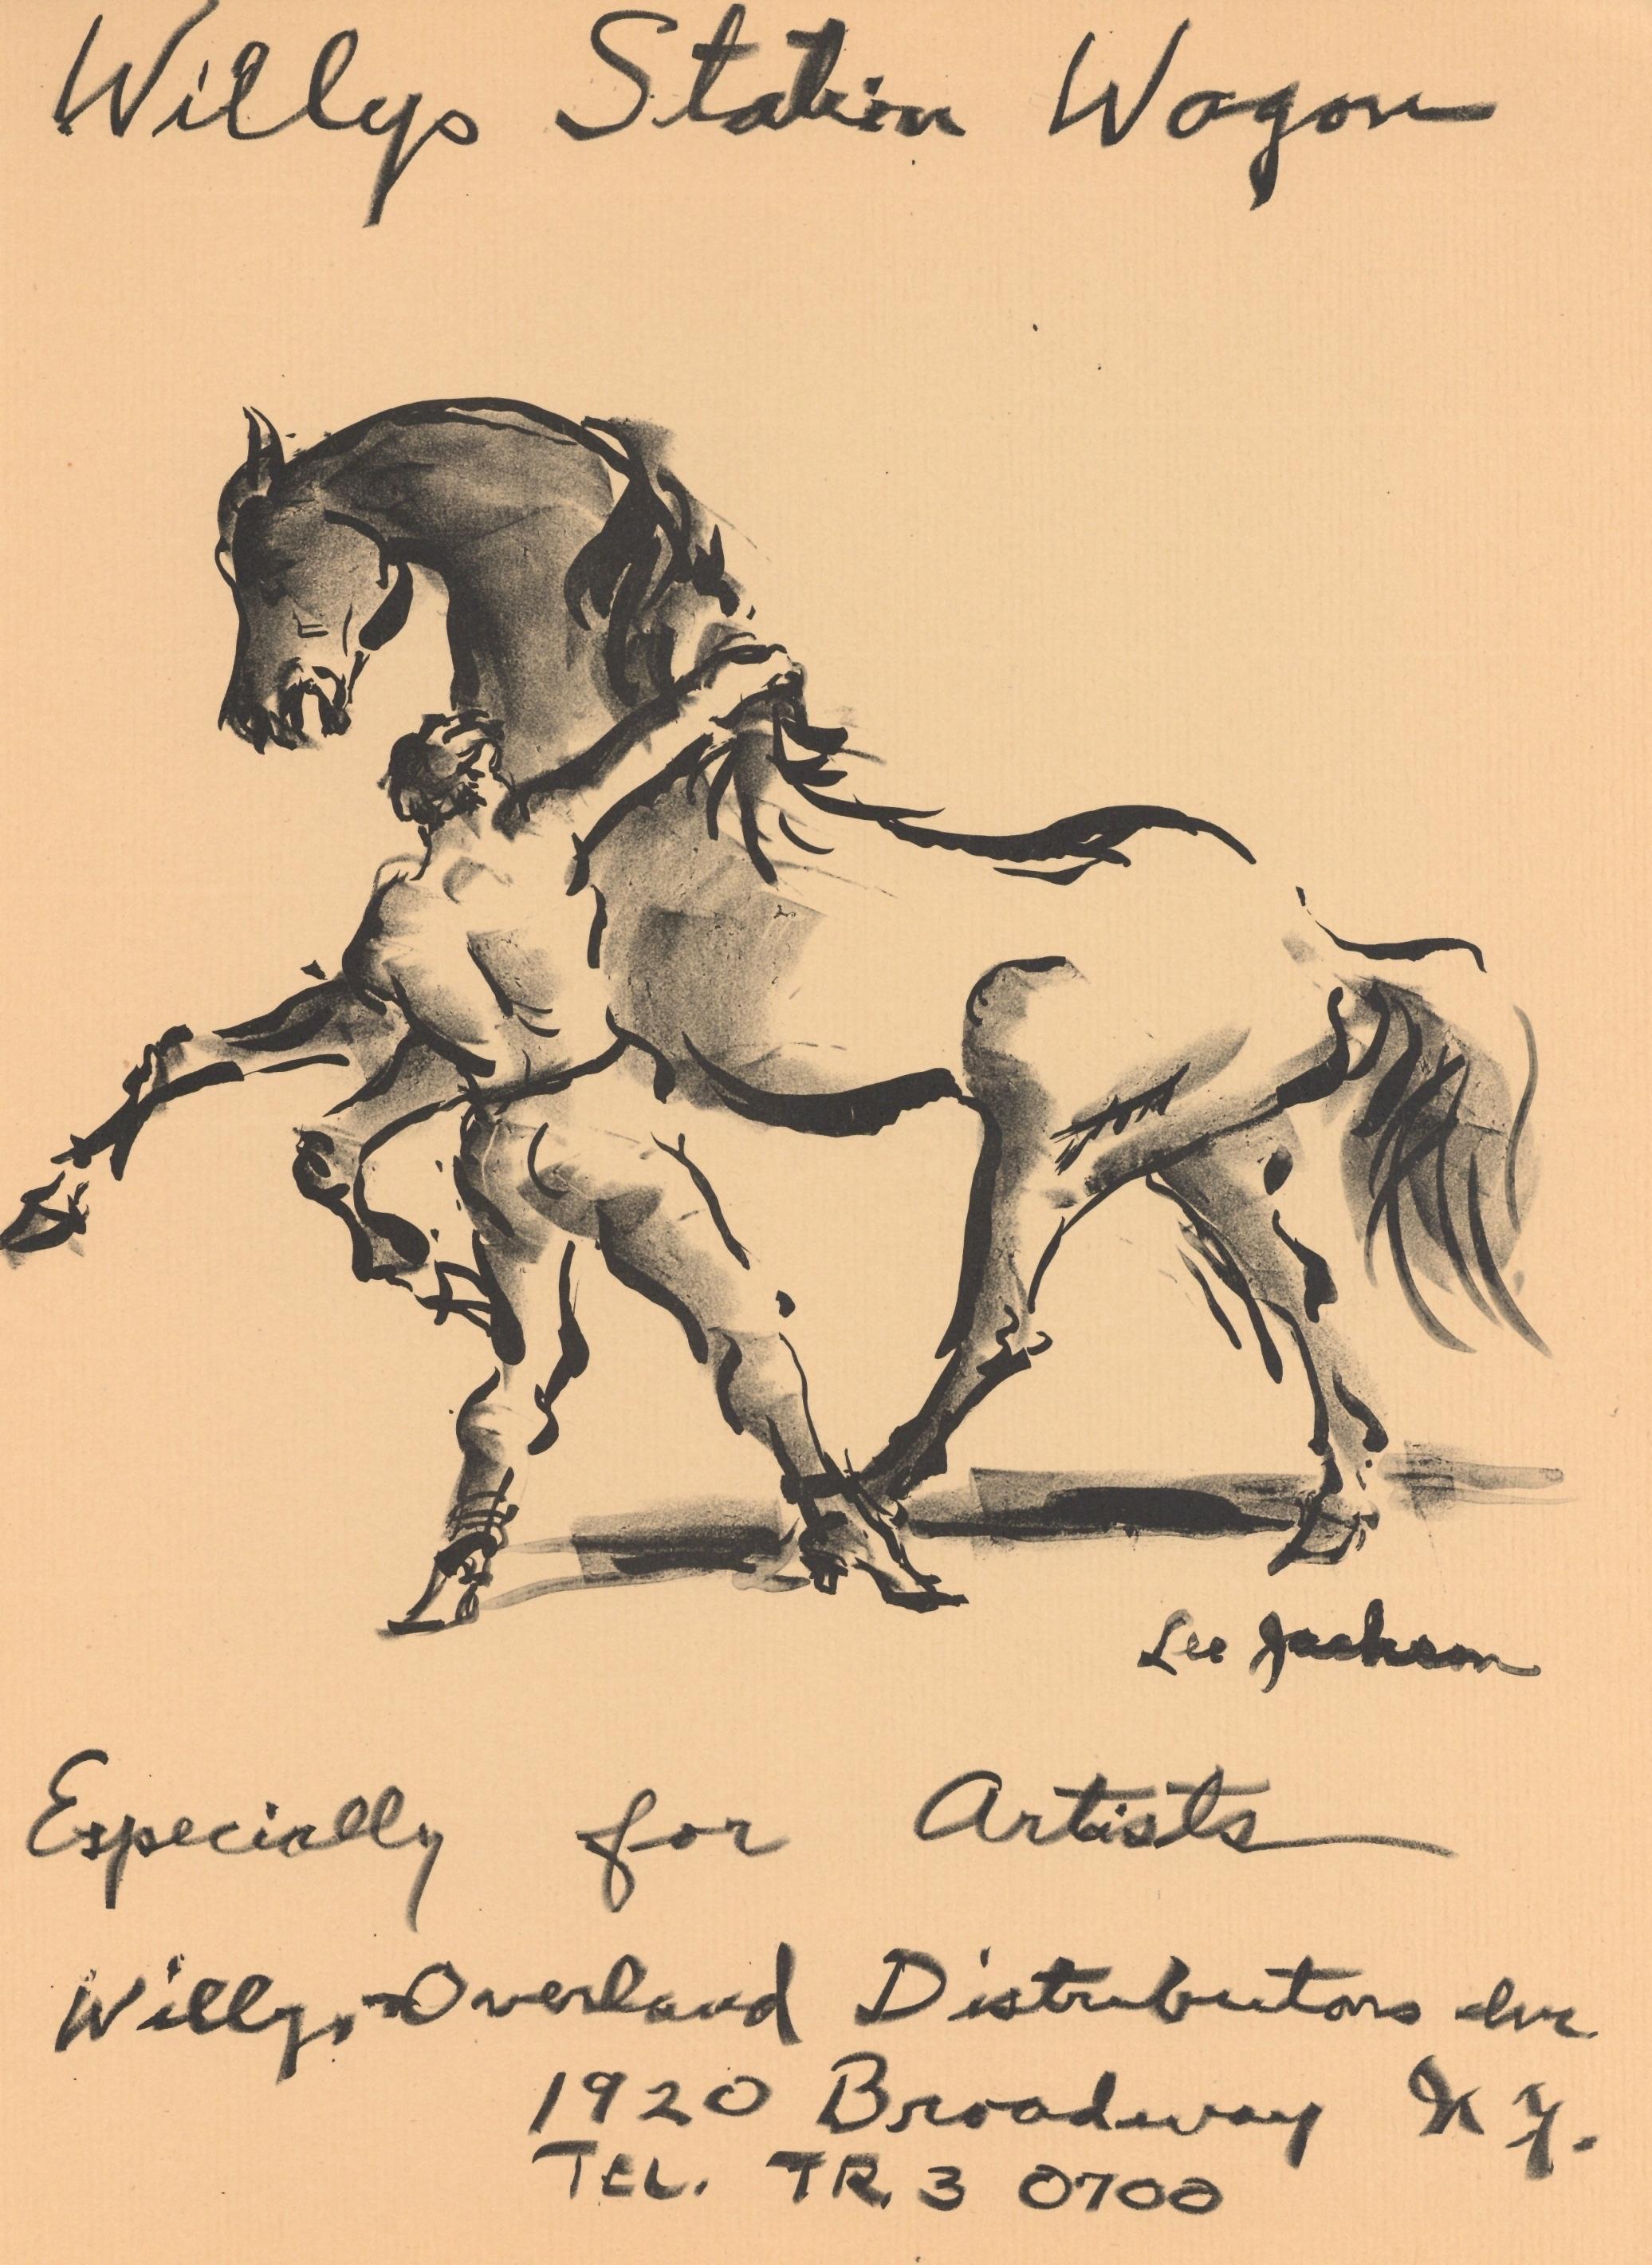 Willys Station Wagon
Lee Jackson
Especially for Artists
Willys-Overland Distributors Inc.
1920 Broadway N.Y.
TEL. TR. 3 0700